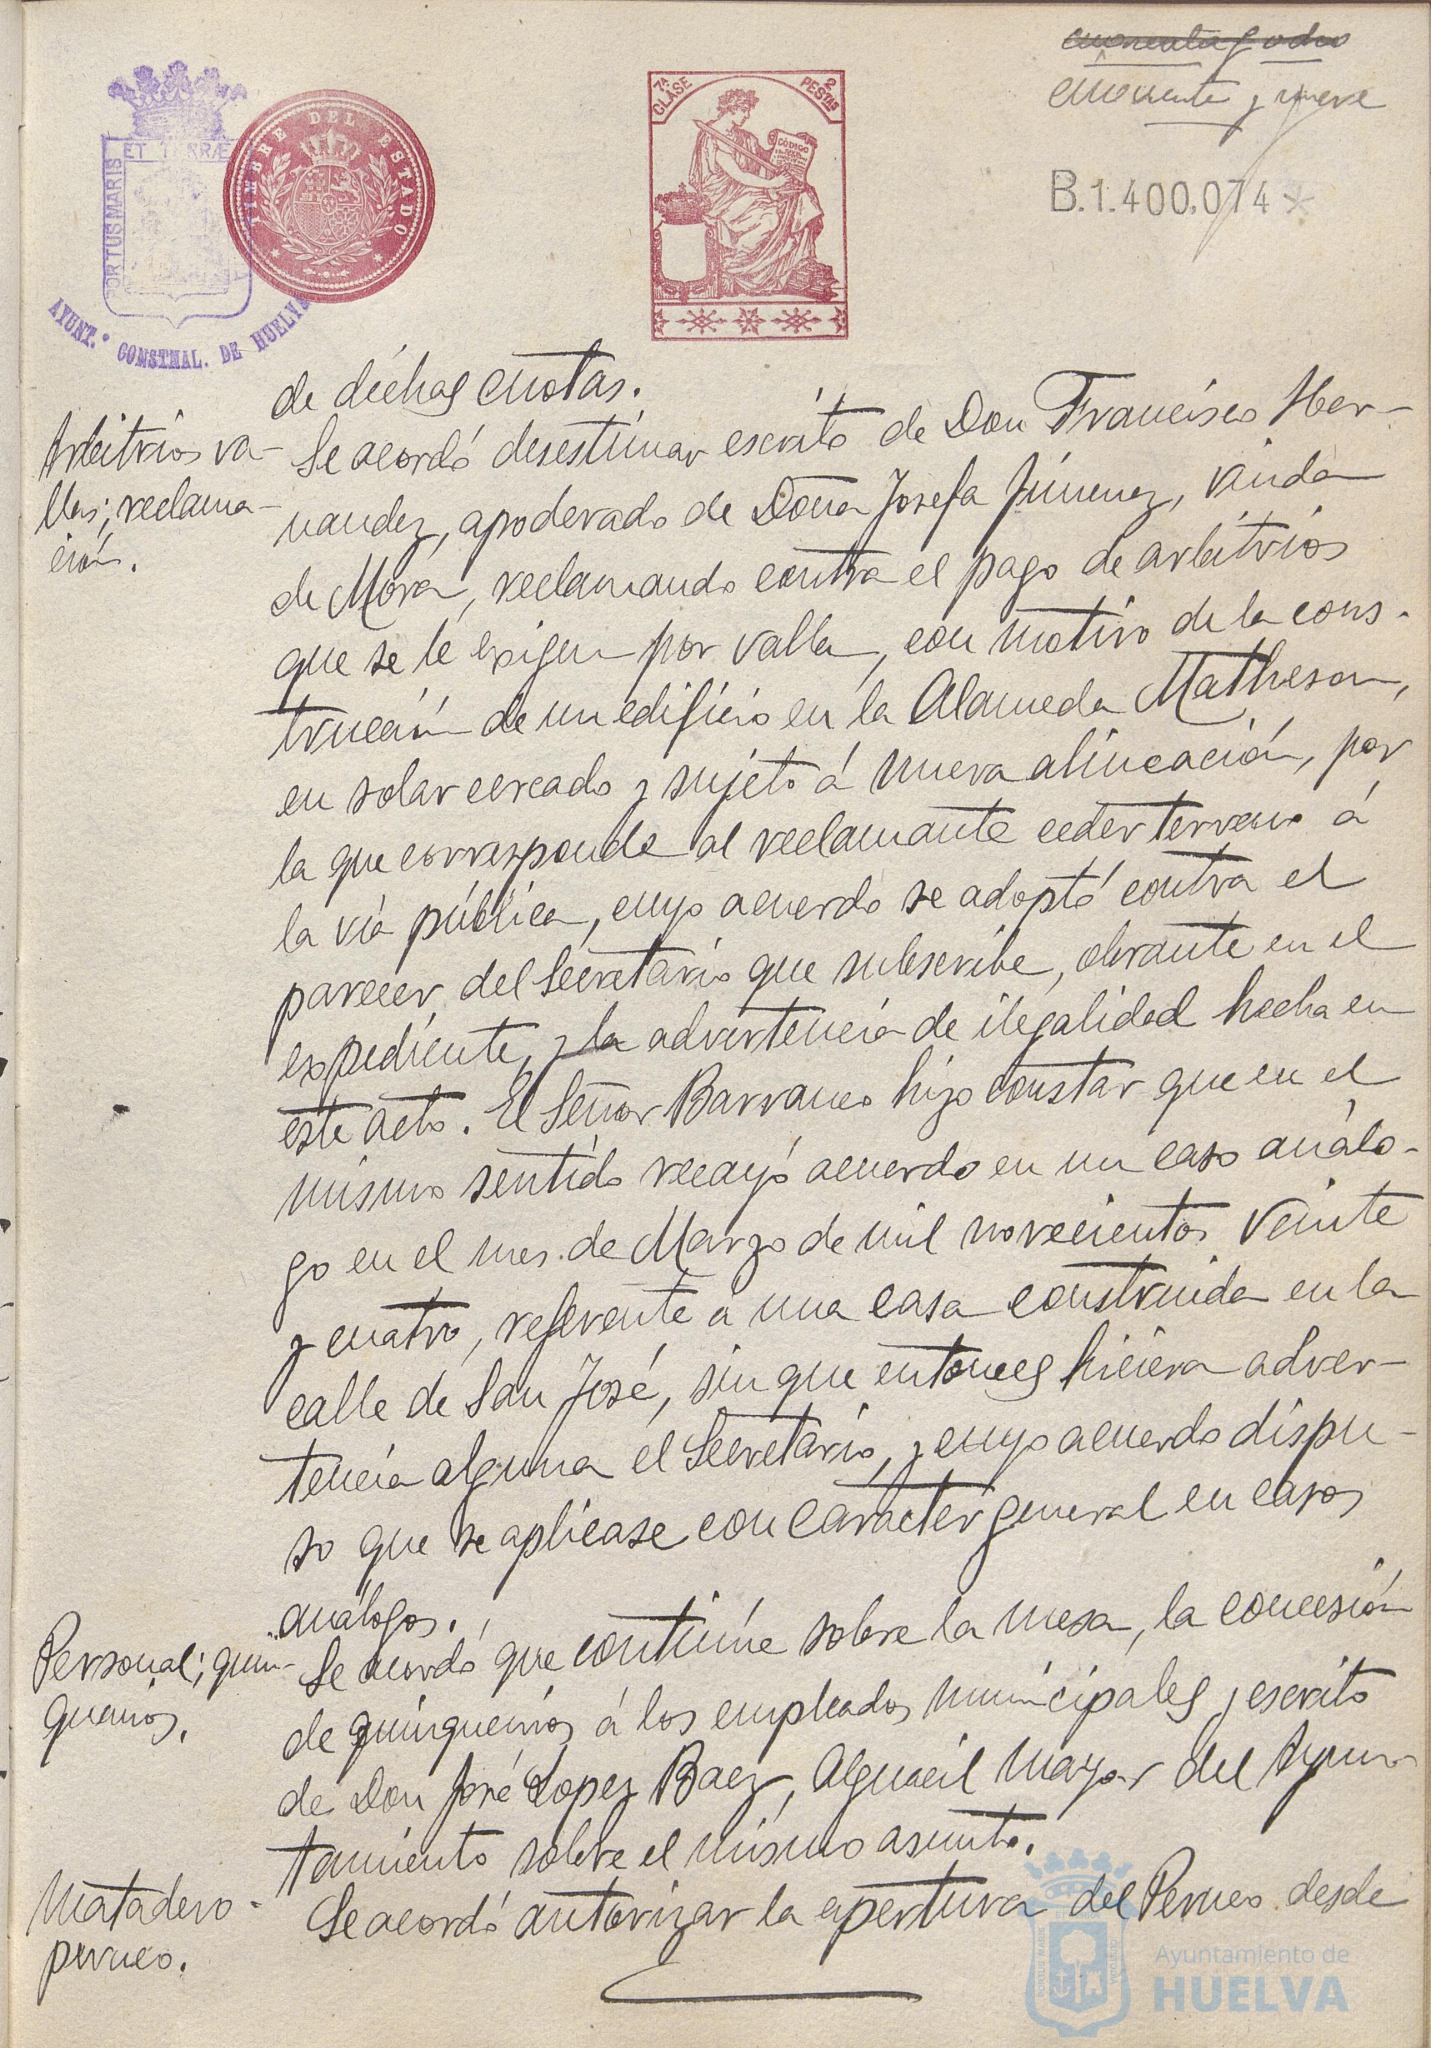 cuarenta y ocho
cincuenta y nueve
B.1.400.074*
7ª CLASE
2 PESTAS
CODIGO
TIMBRE DEL ESTADO
PORTUS MARIS
ET TERRÆ
AYUNT.º CONSTNAL. DE HUELVA
de dichas cuotas.
Arbitrios va-
llas; reclama-
ción.
Se acordó desestimar escrito de Don Francisco Her-
nandez, apoderado de Doña Josefa Jimenez, viuda
de Mora, reclamando contra el pago de arbitrios
que se le exigen por valla, con motivo de la cons-
trucción de un edificio en la Alameda Matheson,
en solar cercado y sujeto á nueva alineación, por
la que corresponde al reclamante ceder terreno á
la vía pública, cuyo acuerdo se adoptó contra el
parecer del Secretario que subscribe, obrante en el
expediente, y la advertencia de ilegalidad hecha en
este acto. El Señor Barranco hizo constar que en el
mismo sentido recayó acuerdo en un caso análo-
go en el mes de Marzo de mil novecientos veinte
y cuatro, referente a una casa construida en la
calle de San José, sin que entonces hiciera adver-
tencia alguna el Secretario, y cuyo acuerdo dispu-
so que se aplicase con carácter general en casos
análogos.
Personal; quin-
quenios.
Se acordó que continúe sobre la mesa, la concesión
de quinquenios á los empleados municipales y escrito
de Don José Lopez Baez, Alguacil Mayor del Ayun-
tamiento sobre el mismo asunto.
Matadero-
perneo.
Se acordó autorizar la apertura del Perneo desde
Ayuntamiento de
HUELVA